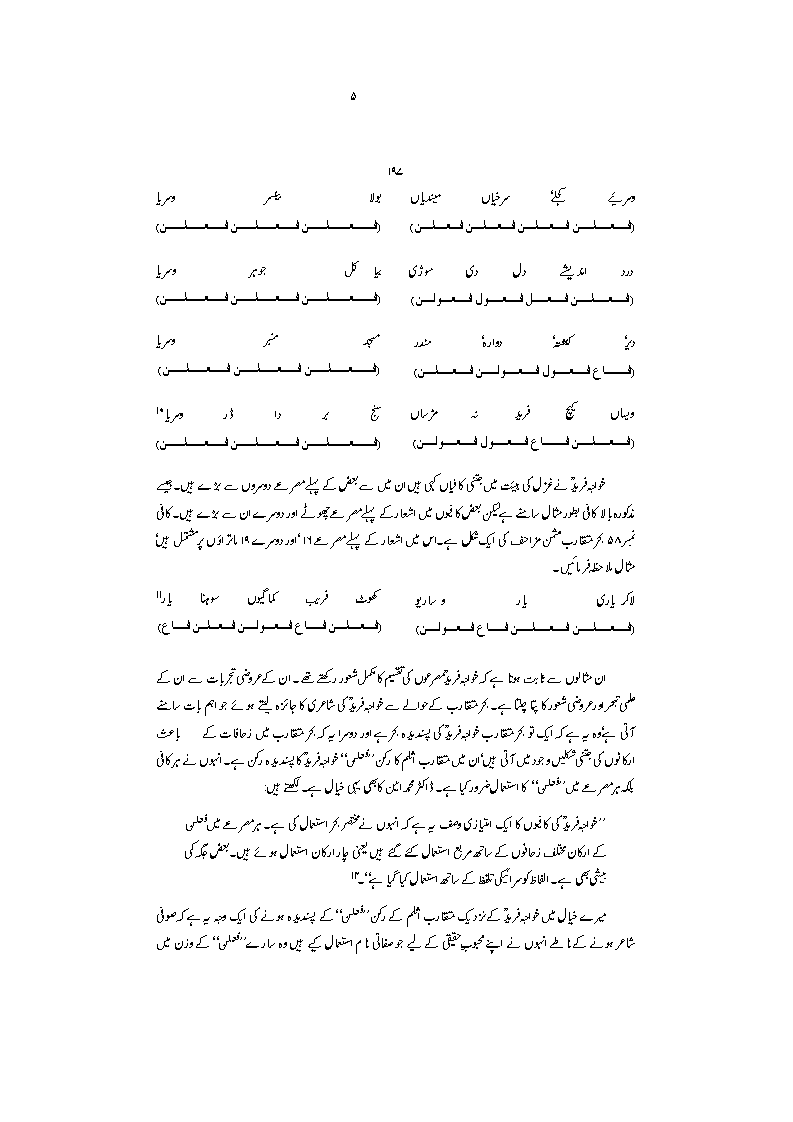 ۵
۱۹۷
وسریئے کجلے سرخیاں میندیاں بولا بینسر وسریا
(فعلن فعلن فعلن فعلن) (فعلن فعلن فعلن)
درد اندیشے دل دی سوڑی بیا کل جوہر وسریا
(فعلن فعل فعول فعولن) (فعلن فعلن فعلن)
دیر، دوارہ، مندر مسجد منبر وسریا
(فاع فعول فعولن فعلن) (فعلن فعلن فعلن)
ویساں کیچ فرید نہ مڑساں سنج بر دا ڈر وسریا۱۰
(فعلن فاع فعول فعولن) (فعلن فعلن فعلن)
خواجہ فریدؒ نے غزل کی ہیئت میں جتنی کافیاں کہی ہیں ان میں سے بعض کے پہلے مصرعے دوسروں سے بڑے ہیں۔ جیسے
مذکورہ بالا کافی بطور مثال سامنے ہے لیکن بعض کافیوں میں اشعار کے پہلے مصرعے چھوٹے اور دوسرے ان سے بڑے ہیں۔ کافی
نمبر ۵۸ بحر متقارب مثمن مزاحف کی ایک شکل ہے۔ اس میں اشعار کے پہلے مصرعے ۱۶ ’اور دوسرے ۱۹ ماتراؤں پر مشتمل ہیں‘
مثال ملاحظہ فرمائیں۔
لاکر یاری یار وساریو کھوٹ فریب کماگیوں سوہنا یار۱۱
(فعلن فعلن فاع فعولن) (فعلن فاع فعولن فعلن فاع)
ان مثالوں سے ثابت ہوتا ہے کہ خواجہ فریدؒ مصرعوں کی تقسیم کا مکمل شعور رکھتے تھے۔ ان کے عروضی تجربات سے ان کے
علمی تبحر اور عروضی شعور کا پتا چلتا ہے۔ بحر متقارب کے حوالے سے خواجہ فریدؒ کی شاعری کا جائزہ لیتے ہوئے جو اہم بات سامنے
آتی ہے وہ یہ ہے کہ ایک تو بحر متقارب خواجہ فریدؒ کی پسندیدہ بحر ہے اور دوسرا یہ کہ بحر متقارب میں زحافات کے باعث
ارکانوں کی جتنی شکلیں وجود میں آتی ہیں‘ ان میں متقارب اثلم کا رکن ’’فعلن‘‘ خواجہ فریدؒ کا پسندیدہ رکن ہے۔ انہوں نے ہر کافی
بلکہ ہر مصرعے میں ’’فعلن‘‘ کا استعمال ضرور کیا ہے۔ ڈاکٹر محمد امین کا بھی یہی خیال ہے۔ لکھتے ہیں:
’’خواجہ فریدؒ کی کافیوں کا ایک امتیازی وصف یہ ہے کہ انہوں نے مختصر بحر استعمال کی ہے۔ ہر مصرعے میں فعلن
کے ارکان مختلف زحافوں کے ساتھ مربع استعمال کئے گئے ہیں یعنی چار ارکان استعمال ہوئے ہیں۔ بعض جگہ کی
بیشی بھی ہے۔ الفاظ کو سرائیکی تلفظ کے ساتھ استعمال کیا گیا ہے‘‘۔۱۲
میرے خیال میں خواجہ فریدؒ کے نزدیک متقارب اثلم کے رکن ’’فعلن‘‘ کے پسندیدہ ہونے کی ایک وجہ یہ ہے کہ صوفی
شاعر ہونے کے ناطے انہوں نے اپنے محبوبِ حقیقی کے لیے جو صفاتی نام استعمال کیے ہیں وہ سارے ’’فعلن‘‘ کے وزن میں